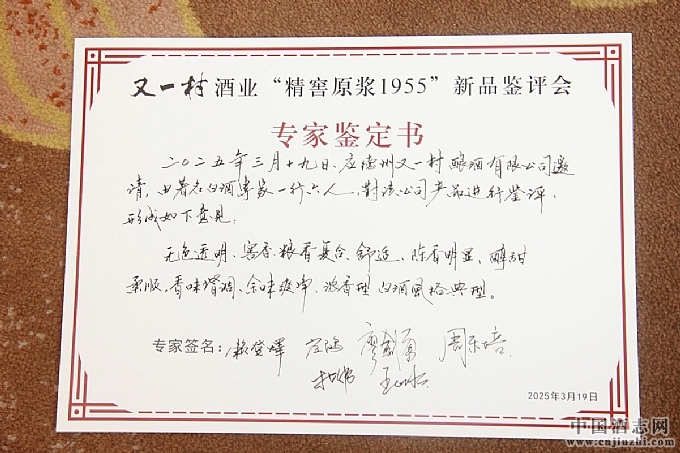 又一村酒业“精窖原浆1955”新品鉴评会
专家鉴定书
二〇二五年三月十九日,应德州又一村酿酒有限公司邀
请,由著名白酒专家一行六人,对该公司产品进行鉴评,
形成如下意见:
无色透明、窖香、粮香复合、舒适、陈香明显、醇甜
柔顺,香味谐调、余味爽净、浓香型白酒风格典型。
专家签名:赖登燡
2025年3月19日
中国酒志网
www.cnjiuzhi.com